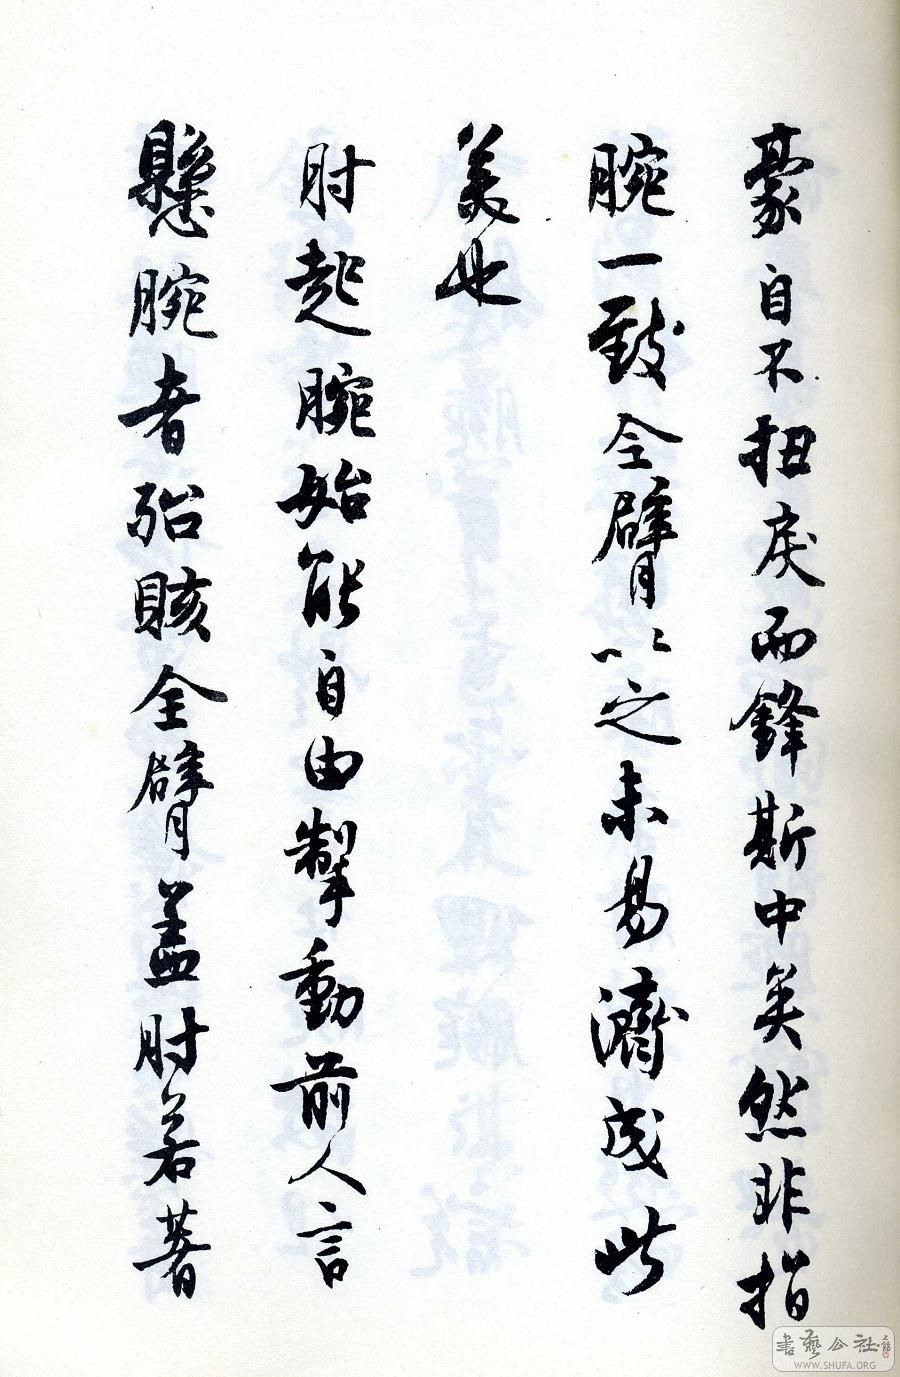 豪自不扭戾而鋒斯中矣然非指
腕一致全臂以之未易濟成此
美也
肘起腕始能自由掣動前人言
懸腕者殆賅全臂蓋肘若著
書藝公社
WWW.SHUFA.ORG